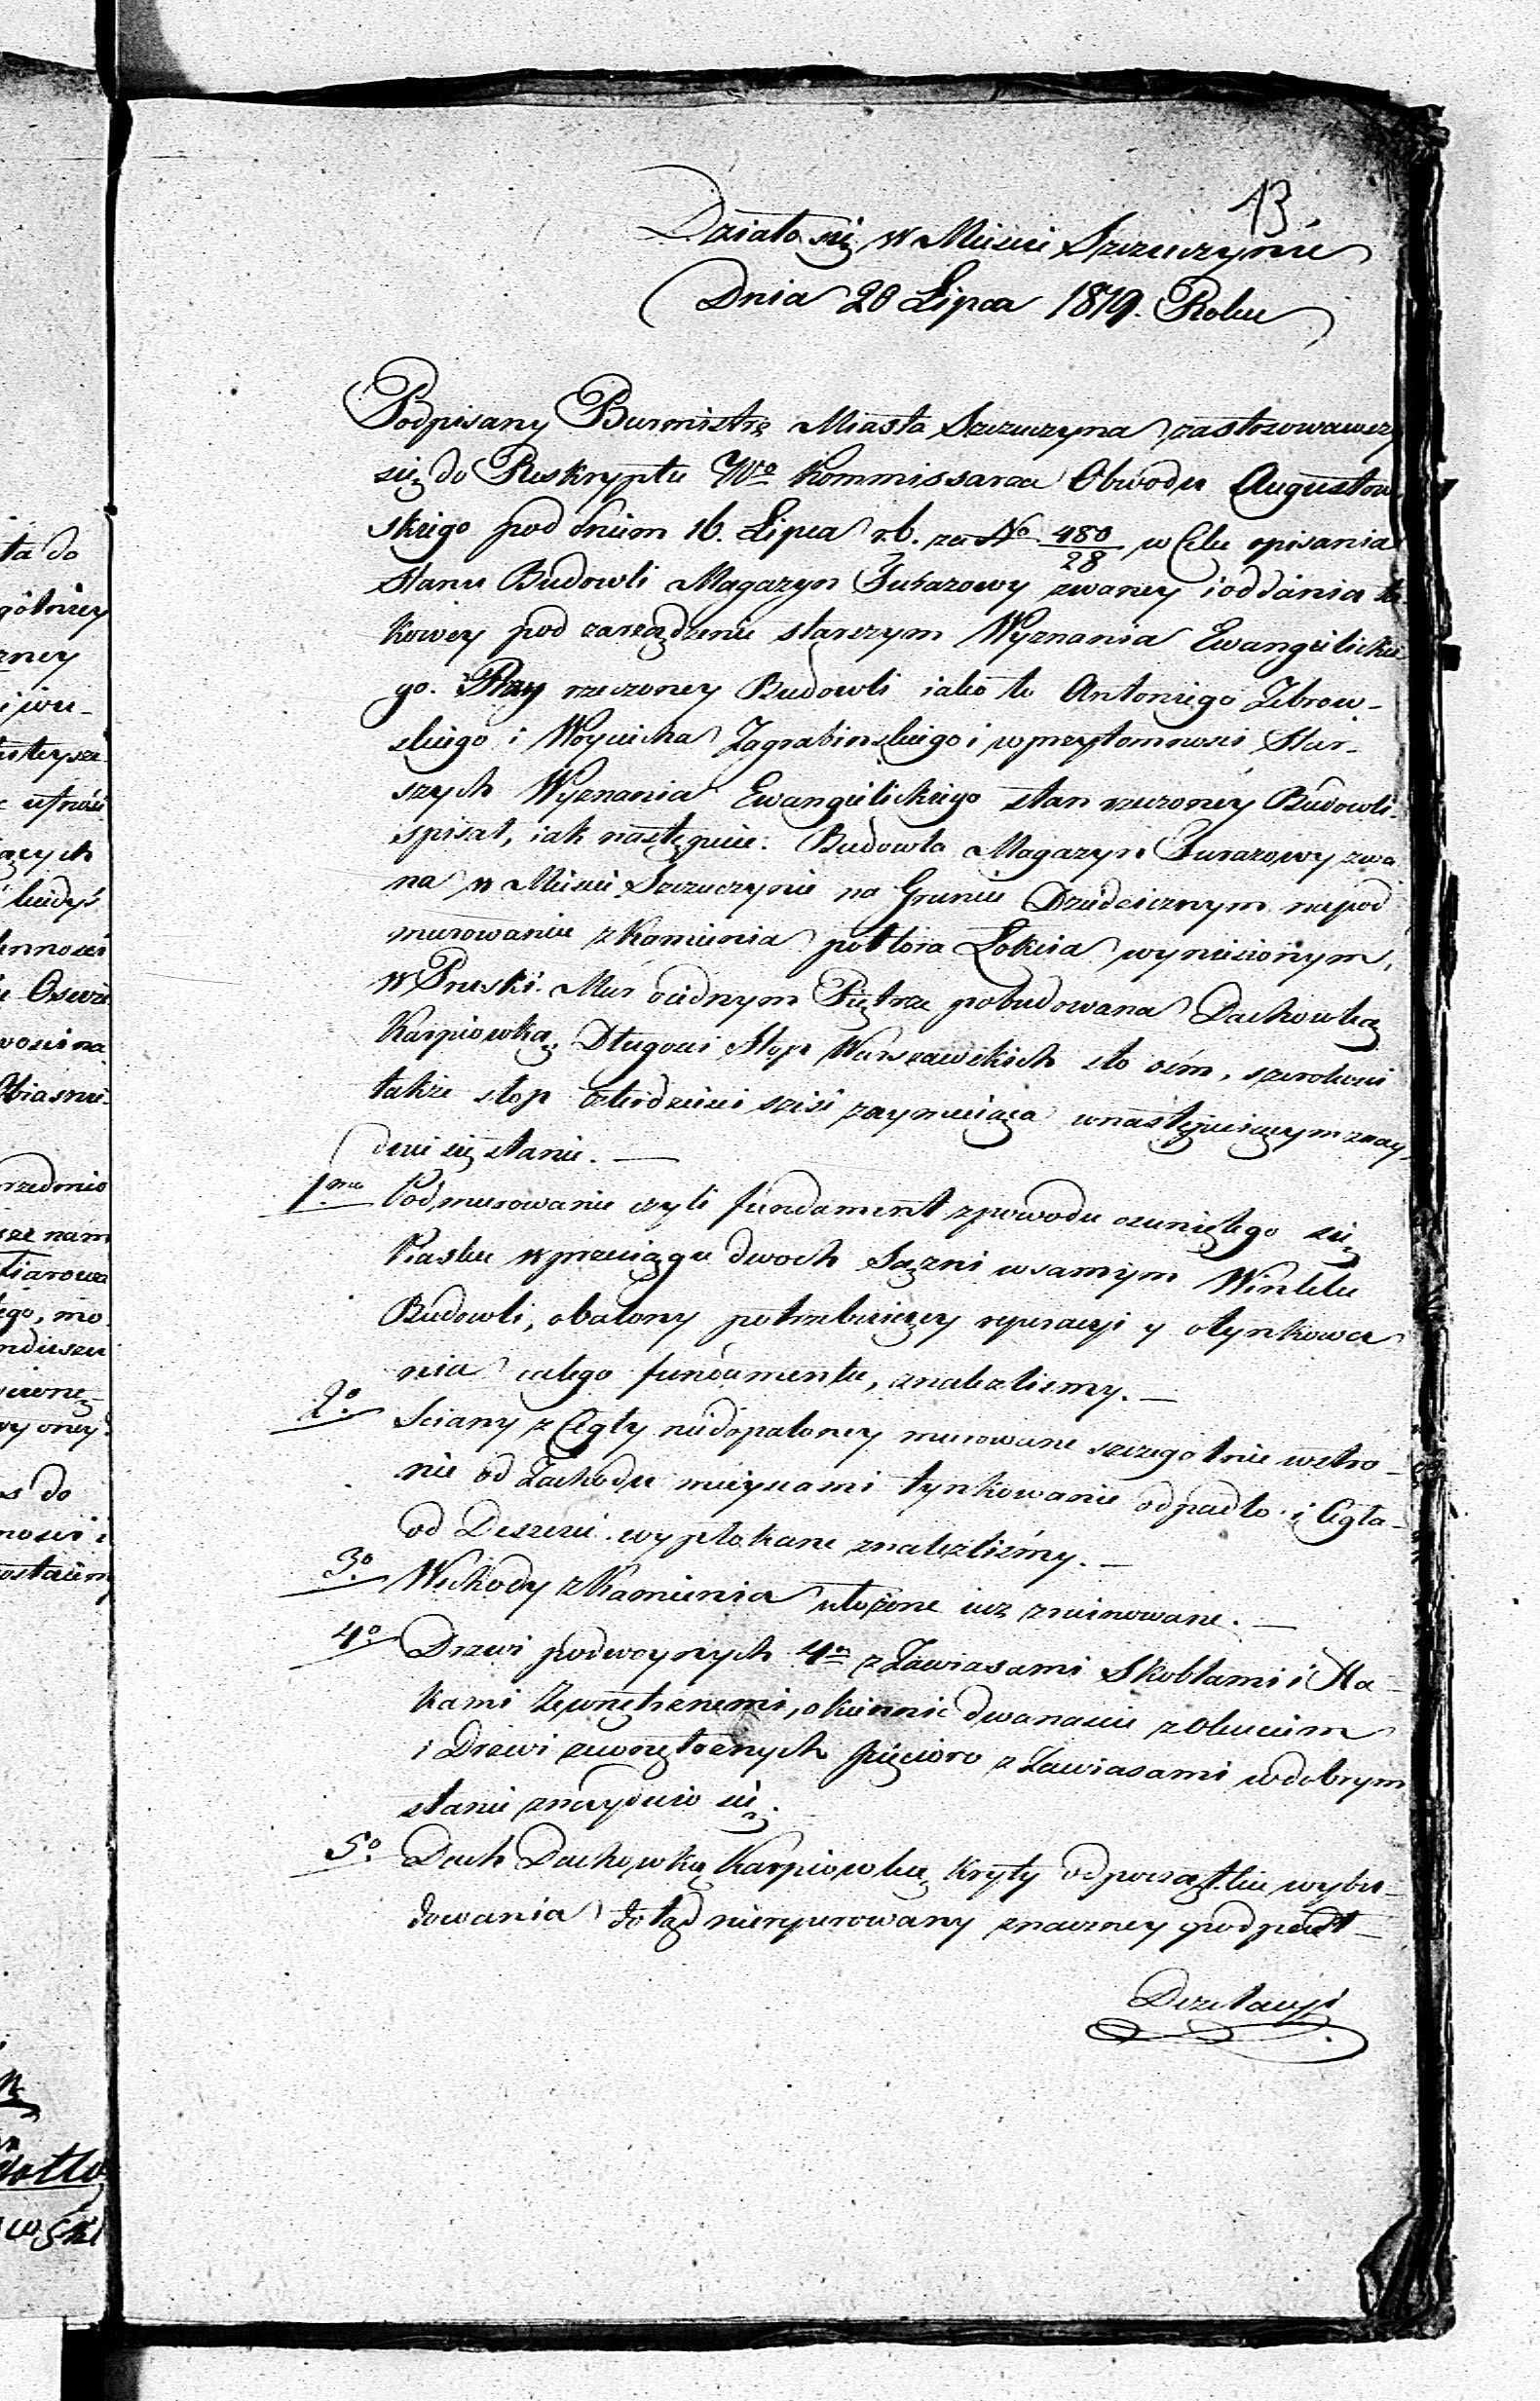 13
Działo się w Mieście Szczuczynie
Dnia 20 Lipca 1819. Roku
Podpisany Burmistrz Miasta Szczuczyna zastosowawszy
się do Reskryptu Wgo Kommissarza Obwodu Augustow
skiego pod dniem 16. Lipca r.b. za No 480/28 w Celu opisania
Stanu Budowli Magazyn Furazowy zwaney i oddania ta
kowey pod zarządzenie starszym Wyznania Ewangelickie
go. Przy rzeczoney Budowli iako to Antoniego Zebrow-
skiego i Woyciecha Zagrabinskiego i w przytomnosci Star-
szych Wyznania Ewangielickiego stan rzeczoney Budowli
spisał, iak następuie: Budowla Magazyn Furazowy zwa
na w Mieście Szczuczynie na Gruncie Dziedzicznym na pod
murowaniu z Kamienia półtora Łokcia wyniesionym,
w Pruski Mur o iednym Piętrze pobudowana Dachowką
Karpiowką, Długości Stop Warszawskich sto ośm, szerokości
także stop czterdzieści sześć zaymuiąca w następuiącym znay
duie się stanie. —
1mo Podmurowanie czyli fundament z powodu osunięlego się
Piasku w przeciągu dwoch Sązni w samym Winklu
Budowli, obalony potrzebuiący reperacyi y otynkowa
nia całego fundamentu, znalezlismy. —
2o Sciany z Cegły niedopaloney murowane szczegolnie w stro-
nie od Zachodu mieyscami tynkowanie odpadło i Cegła
od Deszczu wypłokane znalezliśmy. —
3o Wschody z Kamienia ułożone iuz zruinowane. —
4o Drzwi podwoynych 4o z Zawiasami Skoblami i Ha-
kami Zewnętrznemi, okiennic dwanaście z okuciem
i Drzwi zewnętrznych pięcioro z Zawiasami w dobrym
stanie znayduie się.
5o Dach Dachowką Karpiowką kryty od początku wybu-
dowania dotąd niereperowany znaczney podpadł
Dezelacyi